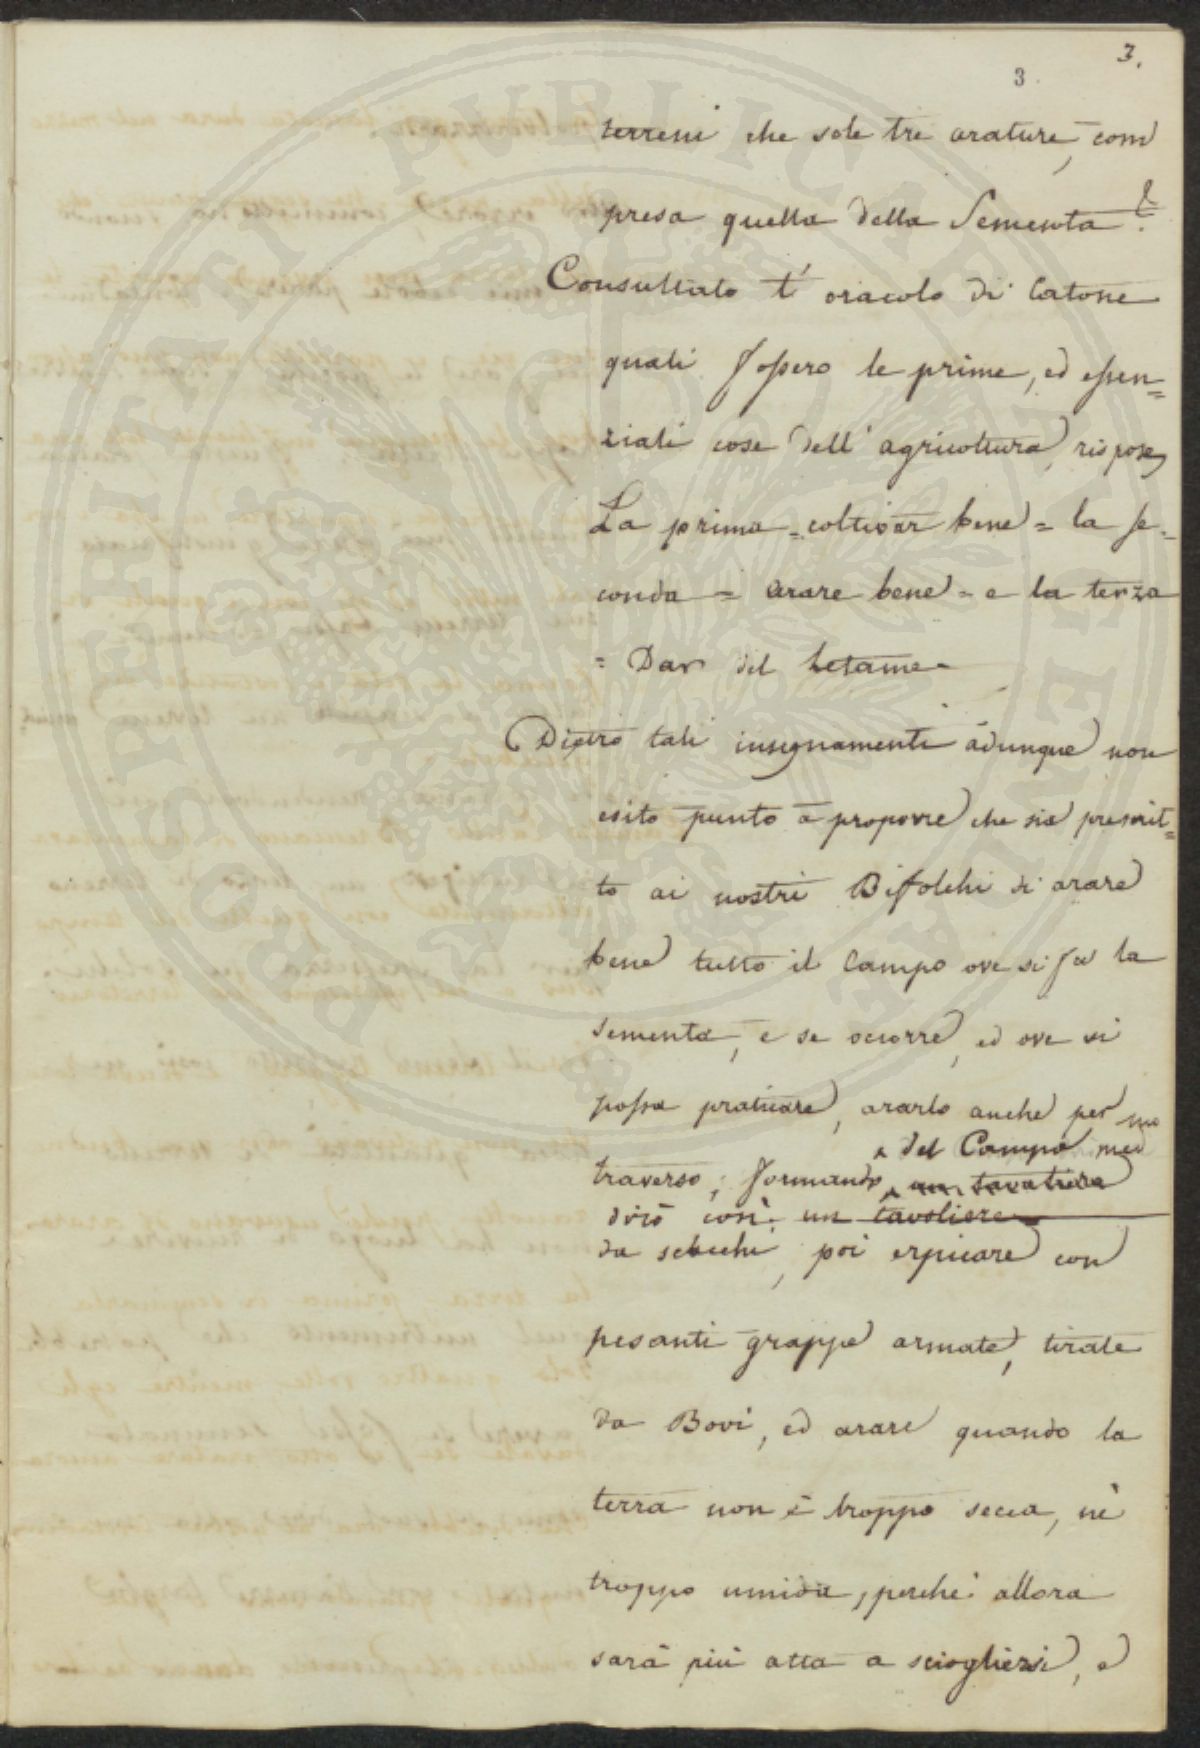 3.
3.
terreni che sole tre arature, com
presa quella della Sementa?
Consultato l' oracolo di Catone
quali fossero le prime, ed essen=
ziali cose dell' agricoltura, rispose,
La prima = coltivar bene = la se=
conda = arare bene = e la terza
= Dar del Letame =
Dietro tali insegnamenti adunque non
esito punto a proporre che sia prescrit=
to ai nostri Bifolchi di arare
bene tutto il Campo ove si fa la
sementa, e se occorre, ed ove si
possa praticare, ararlo anche per
del Campo
traverso, formando un tavoliere
dirò così, un tavoliere
da scacchi, poi erpicare con
pesanti grappe armate, tirate
da Bovi, ed arare quando la
terra non è troppo secca, nè
troppo umida, perchè allora
sarà più atta a sciogliersi, e